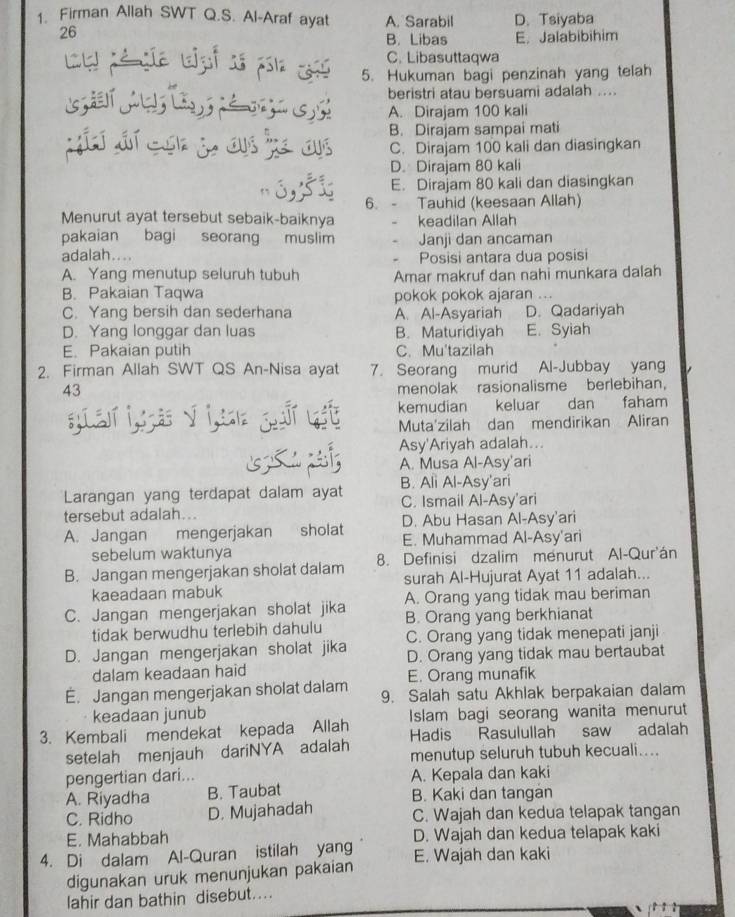 1. Firman Allah SWT Q.S. Al-Araf ayat
26
يَٰبَنِىٓ ءَادَمَ قَدْ أَنزَلْنَا عَلَيْكُمْ لِبَاسًا
يُوَٰرِى سَوْءَٰتِكُمْ وَرِيشًا وَلِبَاسُ ٱلتَّقْوَىٰ
ذَٰلِكَ خَيْرٌ ذَٰلِكَ مِنْ ءَايَٰتِ ٱللَّهِ لَعَلَّهُمْ
يَذَّكَّرُونَ
Menurut ayat tersebut sebaik-baiknya
pakaian bagi seorang muslim
adalah....
A. Yang menutup seluruh tubuh
B. Pakaian Taqwa
C. Yang bersih dan sederhana
D. Yang longgar dan luas
E. Pakaian putih
2. Firman Allah SWT QS An-Nisa ayat
43
يَٰٓأَيُّهَا ٱلَّذِينَ ءَامَنُوا۟ لَا تَقْرَبُوا۟ ٱلصَّلَوٰةَ
وَأَنتُمْ سُكَٰرَىٰ
Larangan yang terdapat dalam ayat
tersebut adalah...
A. Jangan mengerjakan sholat
sebelum waktunya
B. Jangan mengerjakan sholat dalam
kaeadaan mabuk
C. Jangan mengerjakan sholat jika
tidak berwudhu terlebih dahulu
D. Jangan mengerjakan sholat jika
dalam keadaan haid
E. Jangan mengerjakan sholat dalam
keadaan junub
3. Kembali mendekat kepada Allah
setelah menjauh dariNYA adalah
pengertian dari...
A. Riyadha B. Taubat
C. Ridho D. Mujahadah
E. Mahabbah
4. Di dalam Al-Quran istilah yang
digunakan uruk menunjukan pakaian
lahir dan bathin disebut....
A. Sarabil D. Tsiyaba
B. Libas E. Jalabibihim
C. Libasuttaqwa
5. Hukuman bagi penzinah yang telah
beristri atau bersuami adalah ....
A. Dirajam 100 kali
B. Dirajam sampai mati
C. Dirajam 100 kali dan diasingkan
D. Dirajam 80 kali
E. Dirajam 80 kali dan diasingkan
6. - Tauhid (keesaan Allah)
- keadilan Allah
- Janji dan ancaman
- Posisi antara dua posisi
Amar makruf dan nahi munkara dalah
pokok pokok ajaran ...
A. Al-Asyariah D. Qadariyah
B. Maturidiyah E. Syiah
C. Mu'tazilah
7. Seorang murid Al-Jubbay yang
menolak rasionalisme berlebihan,
kemudian keluar dan faham
Muta'zilah dan mendirikan Aliran
Asy'Ariyah adalah...
A. Musa Al-Asy'ari
B. Ali Al-Asy'ari
C. Ismail Al-Asy'ari
D. Abu Hasan Al-Asy'ari
E. Muhammad Al-Asy'ari
8. Definisi dzalim menurut Al-Qur'án
surah Al-Hujurat Ayat 11 adalah...
A. Orang yang tidak mau beriman
B. Orang yang berkhianat
C. Orang yang tidak menepati janji
D. Orang yang tidak mau bertaubat
E. Orang munafik
9. Salah satu Akhlak berpakaian dalam
Islam bagi seorang wanita menurut
Hadis Rasulullah saw adalah
menutup seluruh tubuh kecuali....
A. Kepala dan kaki
B. Kaki dan tangan
C. Wajah dan kedua telapak tangan
D. Wajah dan kedua telapak kaki
E. Wajah dan kaki